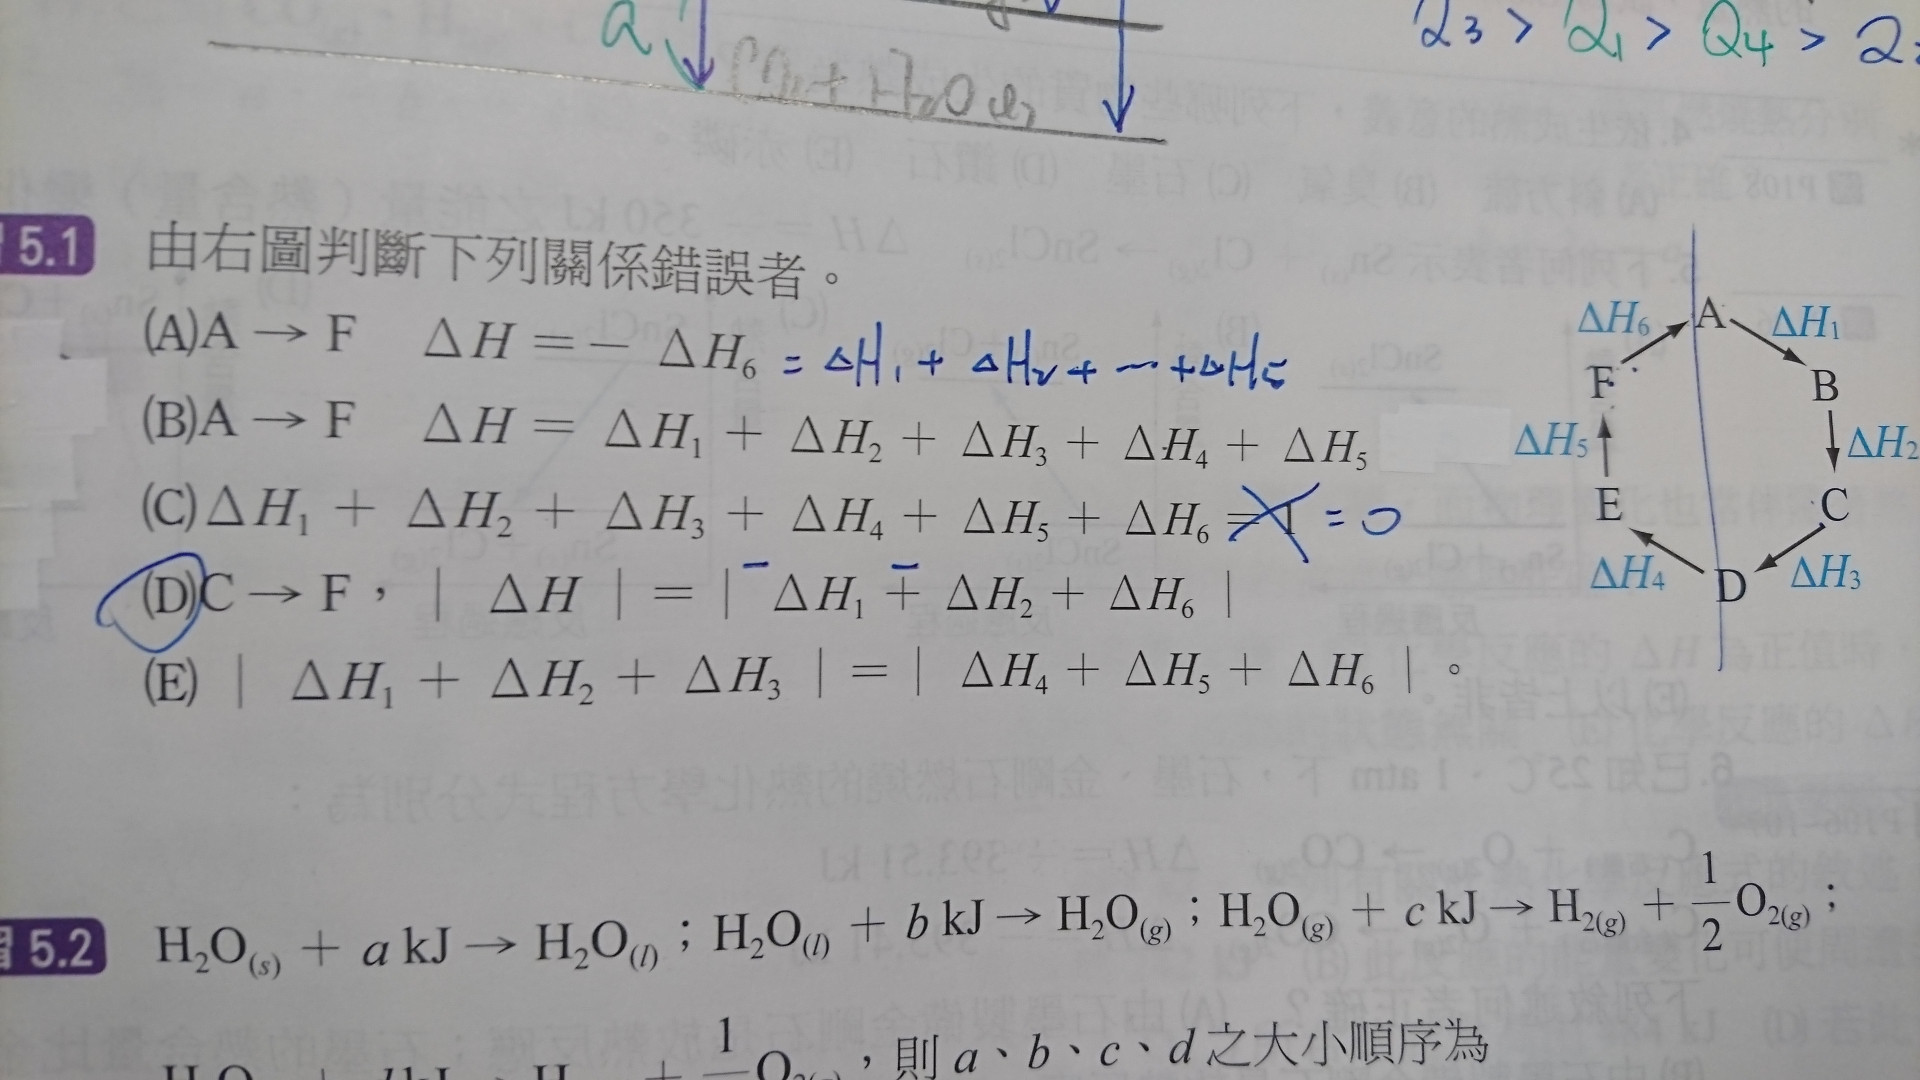 Q3 > Q1 > Q4 > Q2
Q
CO2 + H2O(l)
5.1 由右圖判斷下列關係錯誤者。
(A)A → F ΔH = − ΔH6 = ΔH1 + ΔH2 + ⋯ + ΔH5
(B)A → F ΔH = ΔH1 + ΔH2 + ΔH3 + ΔH4 + ΔH5
(C)ΔH1 + ΔH2 + ΔH3 + ΔH4 + ΔH5 + ΔH6 = 1 = 0
(D)C → F，| ΔH | = | − ΔH1 + − ΔH2 + ΔH6 |
(E) | ΔH1 + ΔH2 + ΔH3 | = | ΔH4 + ΔH5 + ΔH6 | 。
ΔH6 A ΔH1
F B
ΔH5 ΔH2
E C
ΔH4 D ΔH3
5.2 H2O(s) + a kJ → H2O(l)；H2O(l) + b kJ → H2O(g)；H2O(g) + c kJ → H2(g) + 1/2 O2(g)；
1/2 O2(g)，則 a、b、c、d 之大小順序為